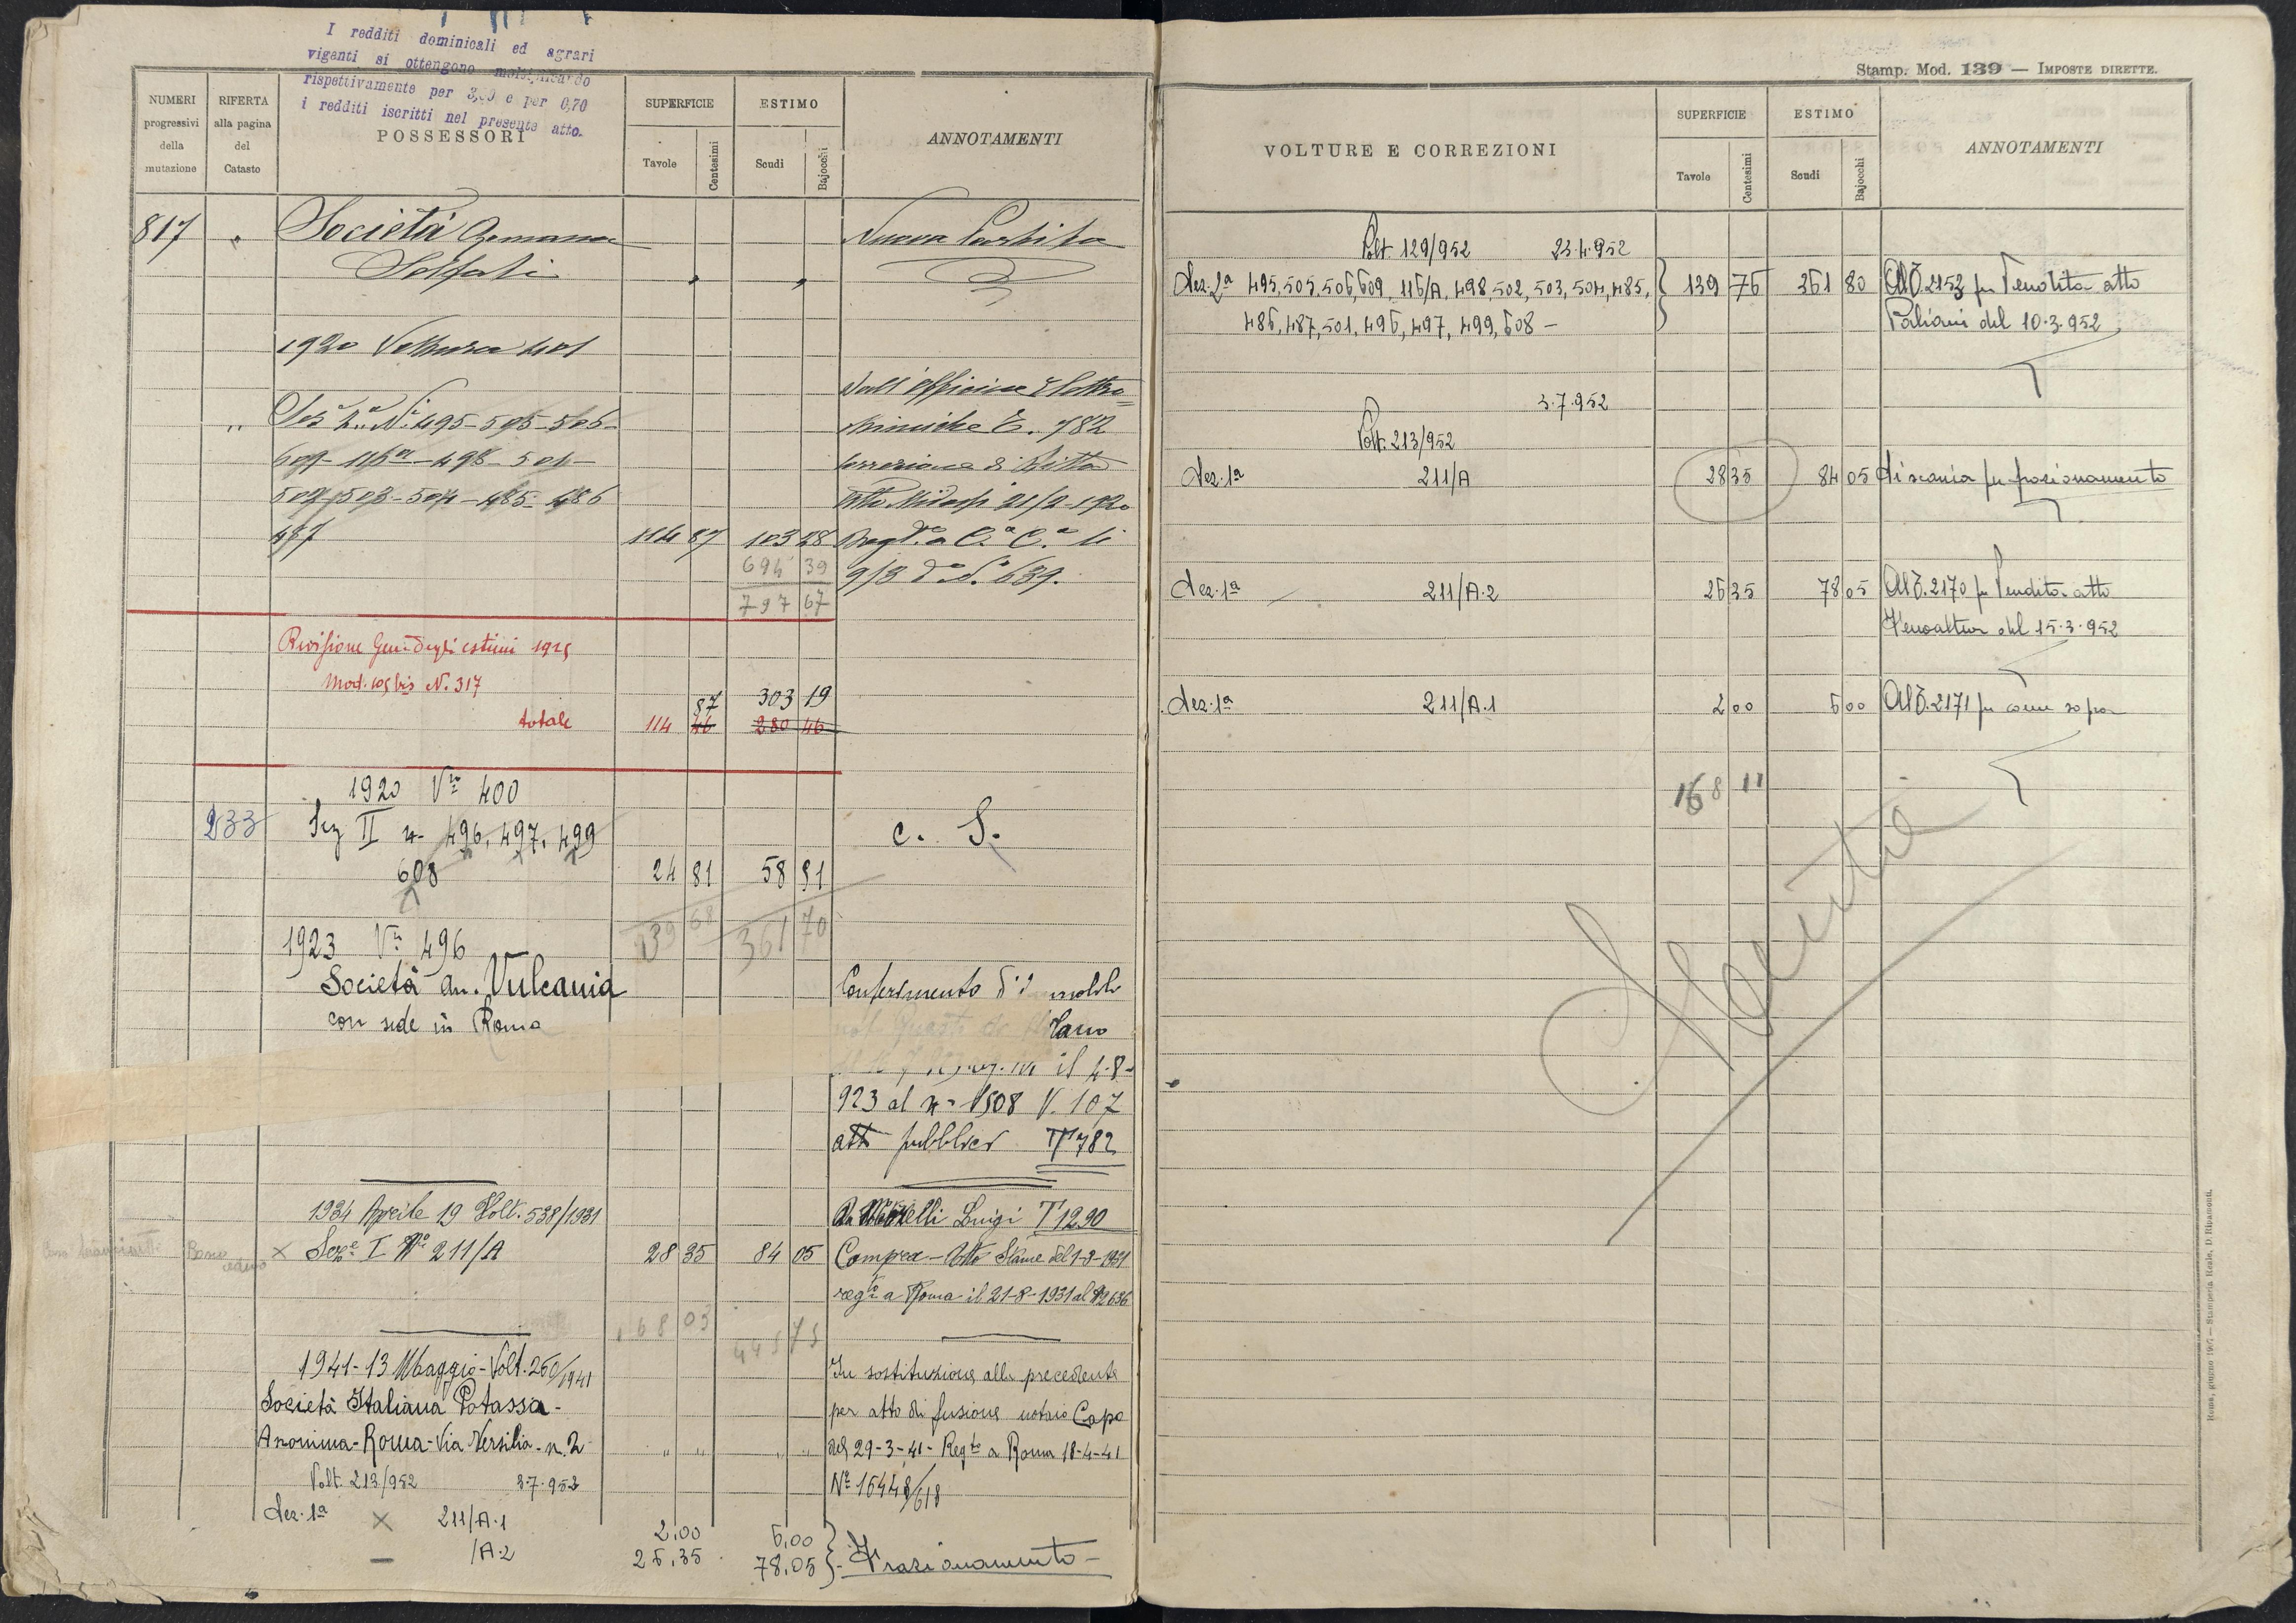 I redditi dominicali ed agrari
viganti si ottengono moltiplicando
rispettivamente per 3,00 e per 0,70
i redditi iscritti nel presente atto.
NUMERI progressivi della mutazione
RIFERTA alla pagina del Catasto
POSSESSORI
SUPERFICIE
Tavole
Centesimi
ESTIMO
Scudi
Bajocchi
ANNOTAMENTI
817 Società Romana Nuova Partita
Solfati
1920 Voltura 401
dall'officine Elettro
Sez 2a Ni 495-505-506- chimiche T. 782
609-116a-498-501-
502-503-504-485-486
487 114 87 103 28
694 39 9/3 do No 639.
797 67
Revisione Gen. degli estimi 1925
Mod. 108 bis N. 317
87 303 19
totale 114 46 280 46
1920 Vra 400
233 Sez II n. 496, 497, 499 c. S.
608 24 81 58 51
139 68 361 70
1923 Vra 496
Società An. Vulcania Conferimento
con sede in Roma
il 4-8-
923 al n. 1508 V. 107
atto pubblico T 782
1934 Aprile 19 Volt. 538/1931 Luigi T 1290
Bosco ceduo × Seze I No 211/A 28 35 84 05 Compra - Atto Stame del 1-8-1931
regto a Roma il 21-8-1931 al No 2636
168 03
445 75
1941-13 Maggio-Volt. 260/1941 In sostituzione alla precedente
Società Italiana Potassa- per atto di fusione notaio Capo
Anonima-Roma-Via Versilia-n. 2 " " " " del 29-3-41- Regto a Roma 18-4-41
Volt. 213/952 3.7.952 No 16448/618
Sez. 1a × 211/A.1 2.00 6,00
/A.2 26,35 78,05 } - Frazionamento -
Stamp. Mod. 139 — IMPOSTE DIRETTE.
VOLTURE E CORREZIONI
SUPERFICIE
Tavole
Centesimi
ESTIMO
Scudi
Bajocchi
ANNOTAMENTI
Volt. 129/952 23.4.952
Sez. 2a 495, 505, 506, 609, 116/A, 498, 502, 503, 504, 485, } 139 76 361 80 Al T. 2153 per Vendita atto
486, 487, 501, 496, 497, 499, 608 - Paliani del 10.3.952
3.7.952
Volt. 213/952
Sez. 1a 211/A 28 35 84 05 Si scarica per frazionamento
Sez. 1a 211/A.2 26 35 78 05 Al T. 2170 per Vendita atto
del 15.3.952
Sez. 1a 211/A.1 2 00 6 00 Al T. 2171 per come sopra
168 11
Spenta
Roma, giugno 1907 — Stamperia Reale, D. Ripamonti.